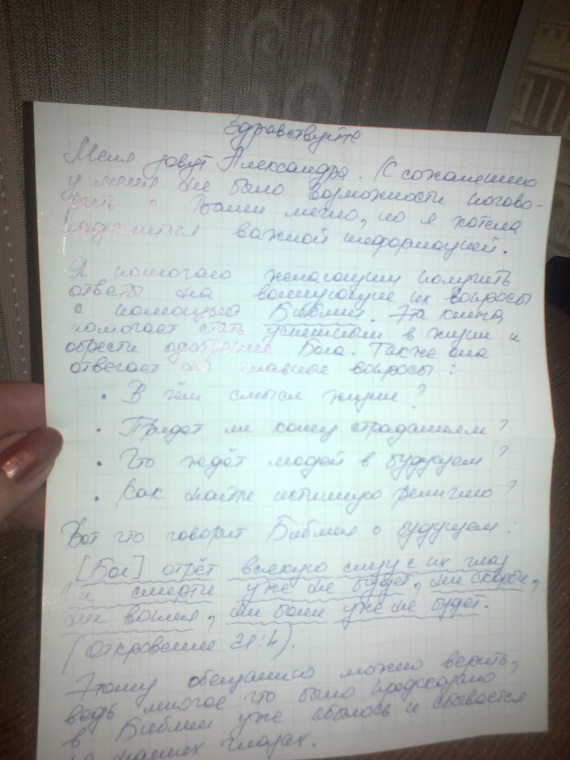 Здравствуйте
Меня зовут Александра. К сожалению
у меня не было возможности погово-
рить с Вами лично, но я хотела
поделиться важной информацией.
Я помогаю желающим получить
ответы на волнующие их вопросы
с помощью Библии. Эта книга
помогает стать успешным в жизни и
обрести одобрение Бога. Также она
отвечает на главные вопросы:
• В чём смысл жизни?
• Придет ли конец страданиям?
• Что ждёт людей в будущем?
• Как найти истинную религию?
Вот что говорит Библия о будущем:
"[Бог] отрёт всякую слезу с их глаз
и смерти уже не будет, ни скорби,
ни вопля, ни боли уже не будет.
(Откровение 21:4).
Этому обещанию можно верить,
ведь многое что было предсказано
в Библии уже сбылось и сбывается
на наших глазах.